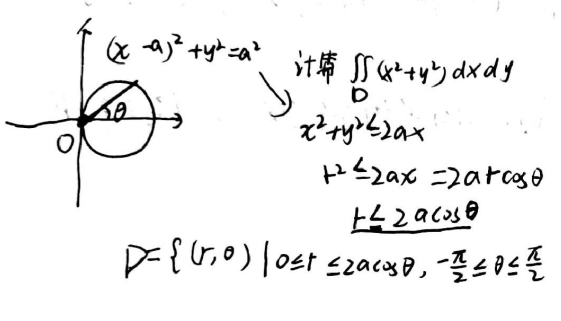 (x-a)²+y²=a²
计算 ∬(x²+y²)dxdy
D
θ
x²+y²≤2ax
O
r²≤2ax=2arcosθ
r≤2acosθ
D={(r,θ)|0≤r≤2acosθ,-π/2≤θ≤π/2